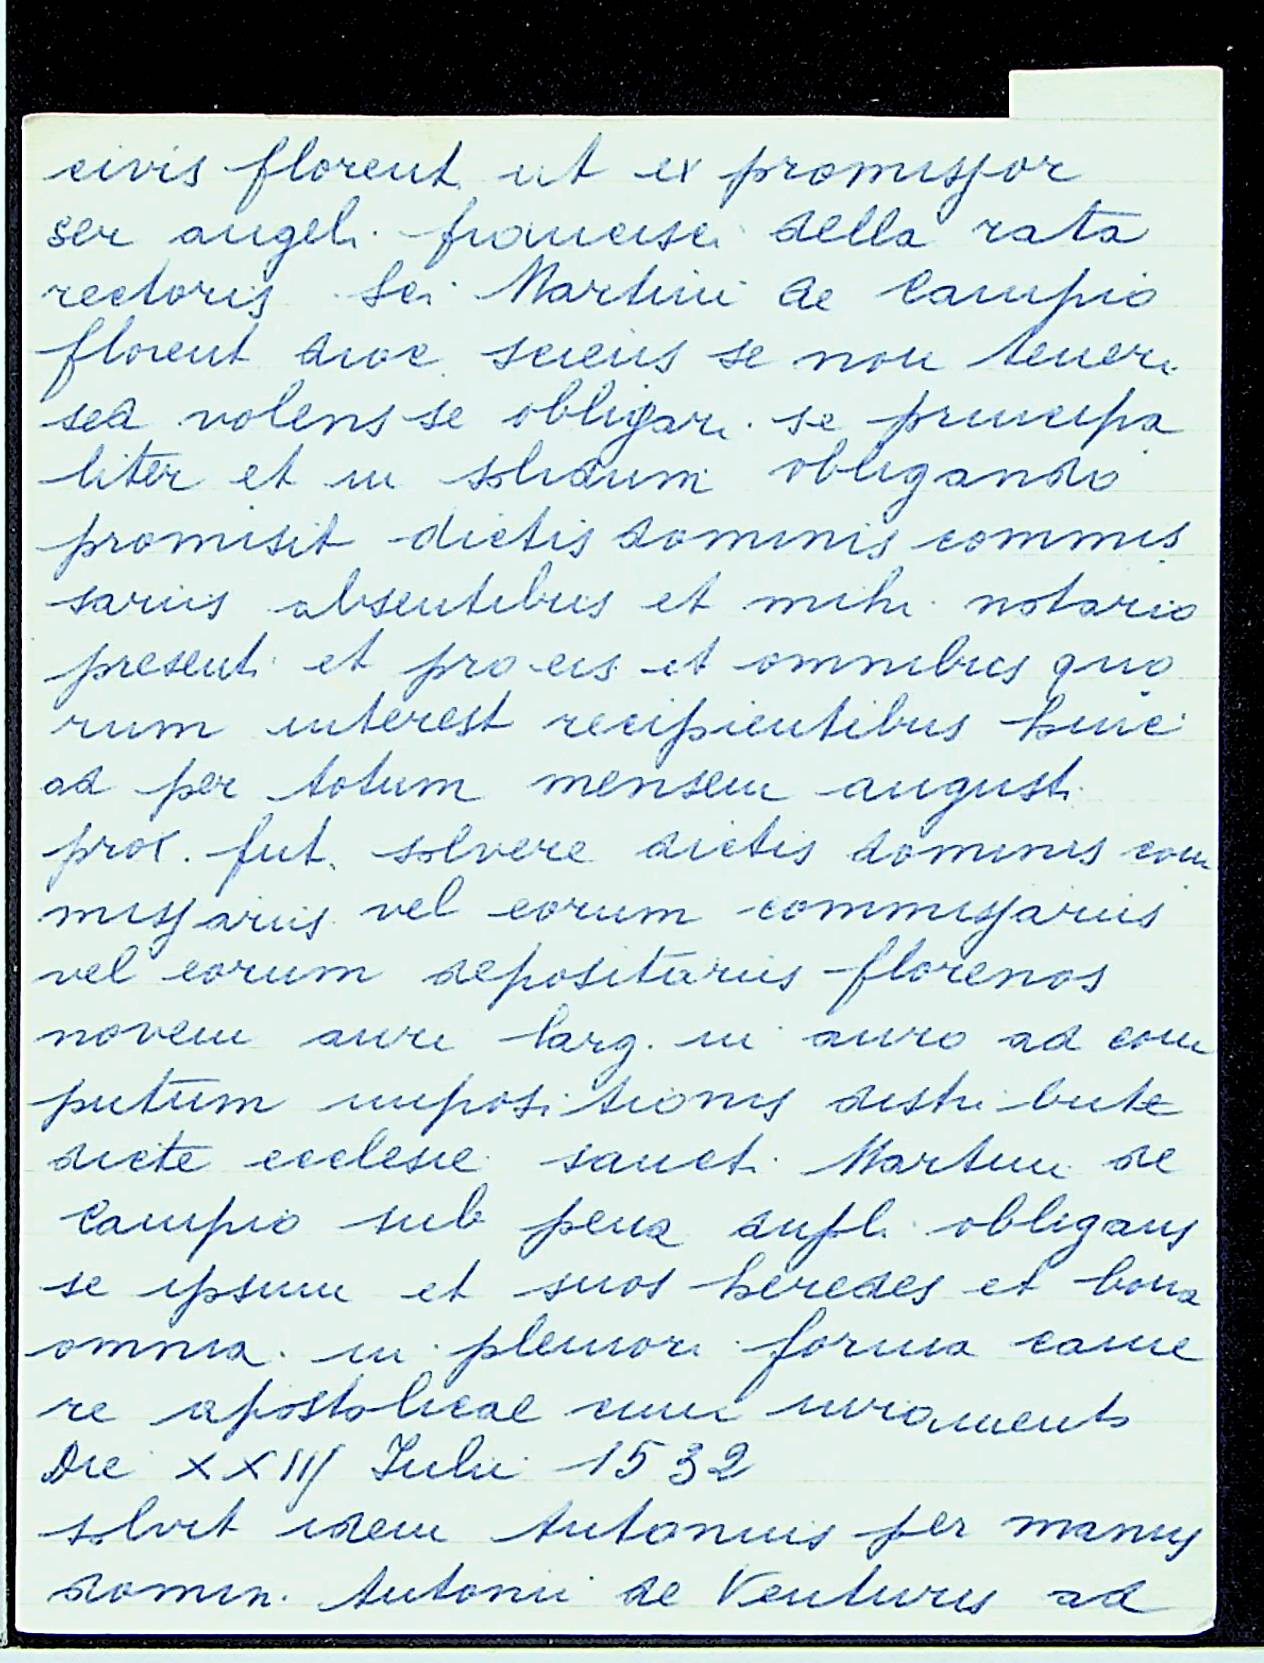 civis florent. ut ex promissor
ser angeli francisci della rata
rectoris Sci Martini de Campio
florent dioc. sciens se non teneri
sed volens se obligari se principa
liter et in solidum obligando
promisit dictis dominis commis
sariis absentibus et mihi notario
presenti et pro eis et omnibus quo
rum interest recipientibus hinc
ad per totum mensem augusti
prox. fut. solvere dictis dominis com
missariis vel eorum commissariis
vel eorum depositariis florenos
novem auri larg. in auro ad com
putum impositionis distribute
dicte ecclesie sancti Martini de
Campio sub pena dupli obligans
se ipsum et suos heredes et bona
omnia in pleniori forma came
re apostolicae cum iuramento
Die XXIIJ Iulii 1532
solvit idem Antonius per manus
domin. Antonii de Venturis ad